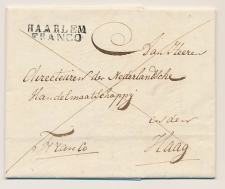 HAARLEM
FRANCO
Den Heeren
Directeuren der Nederlandsche
Handelmaatschappij
in den
Haag
Franco